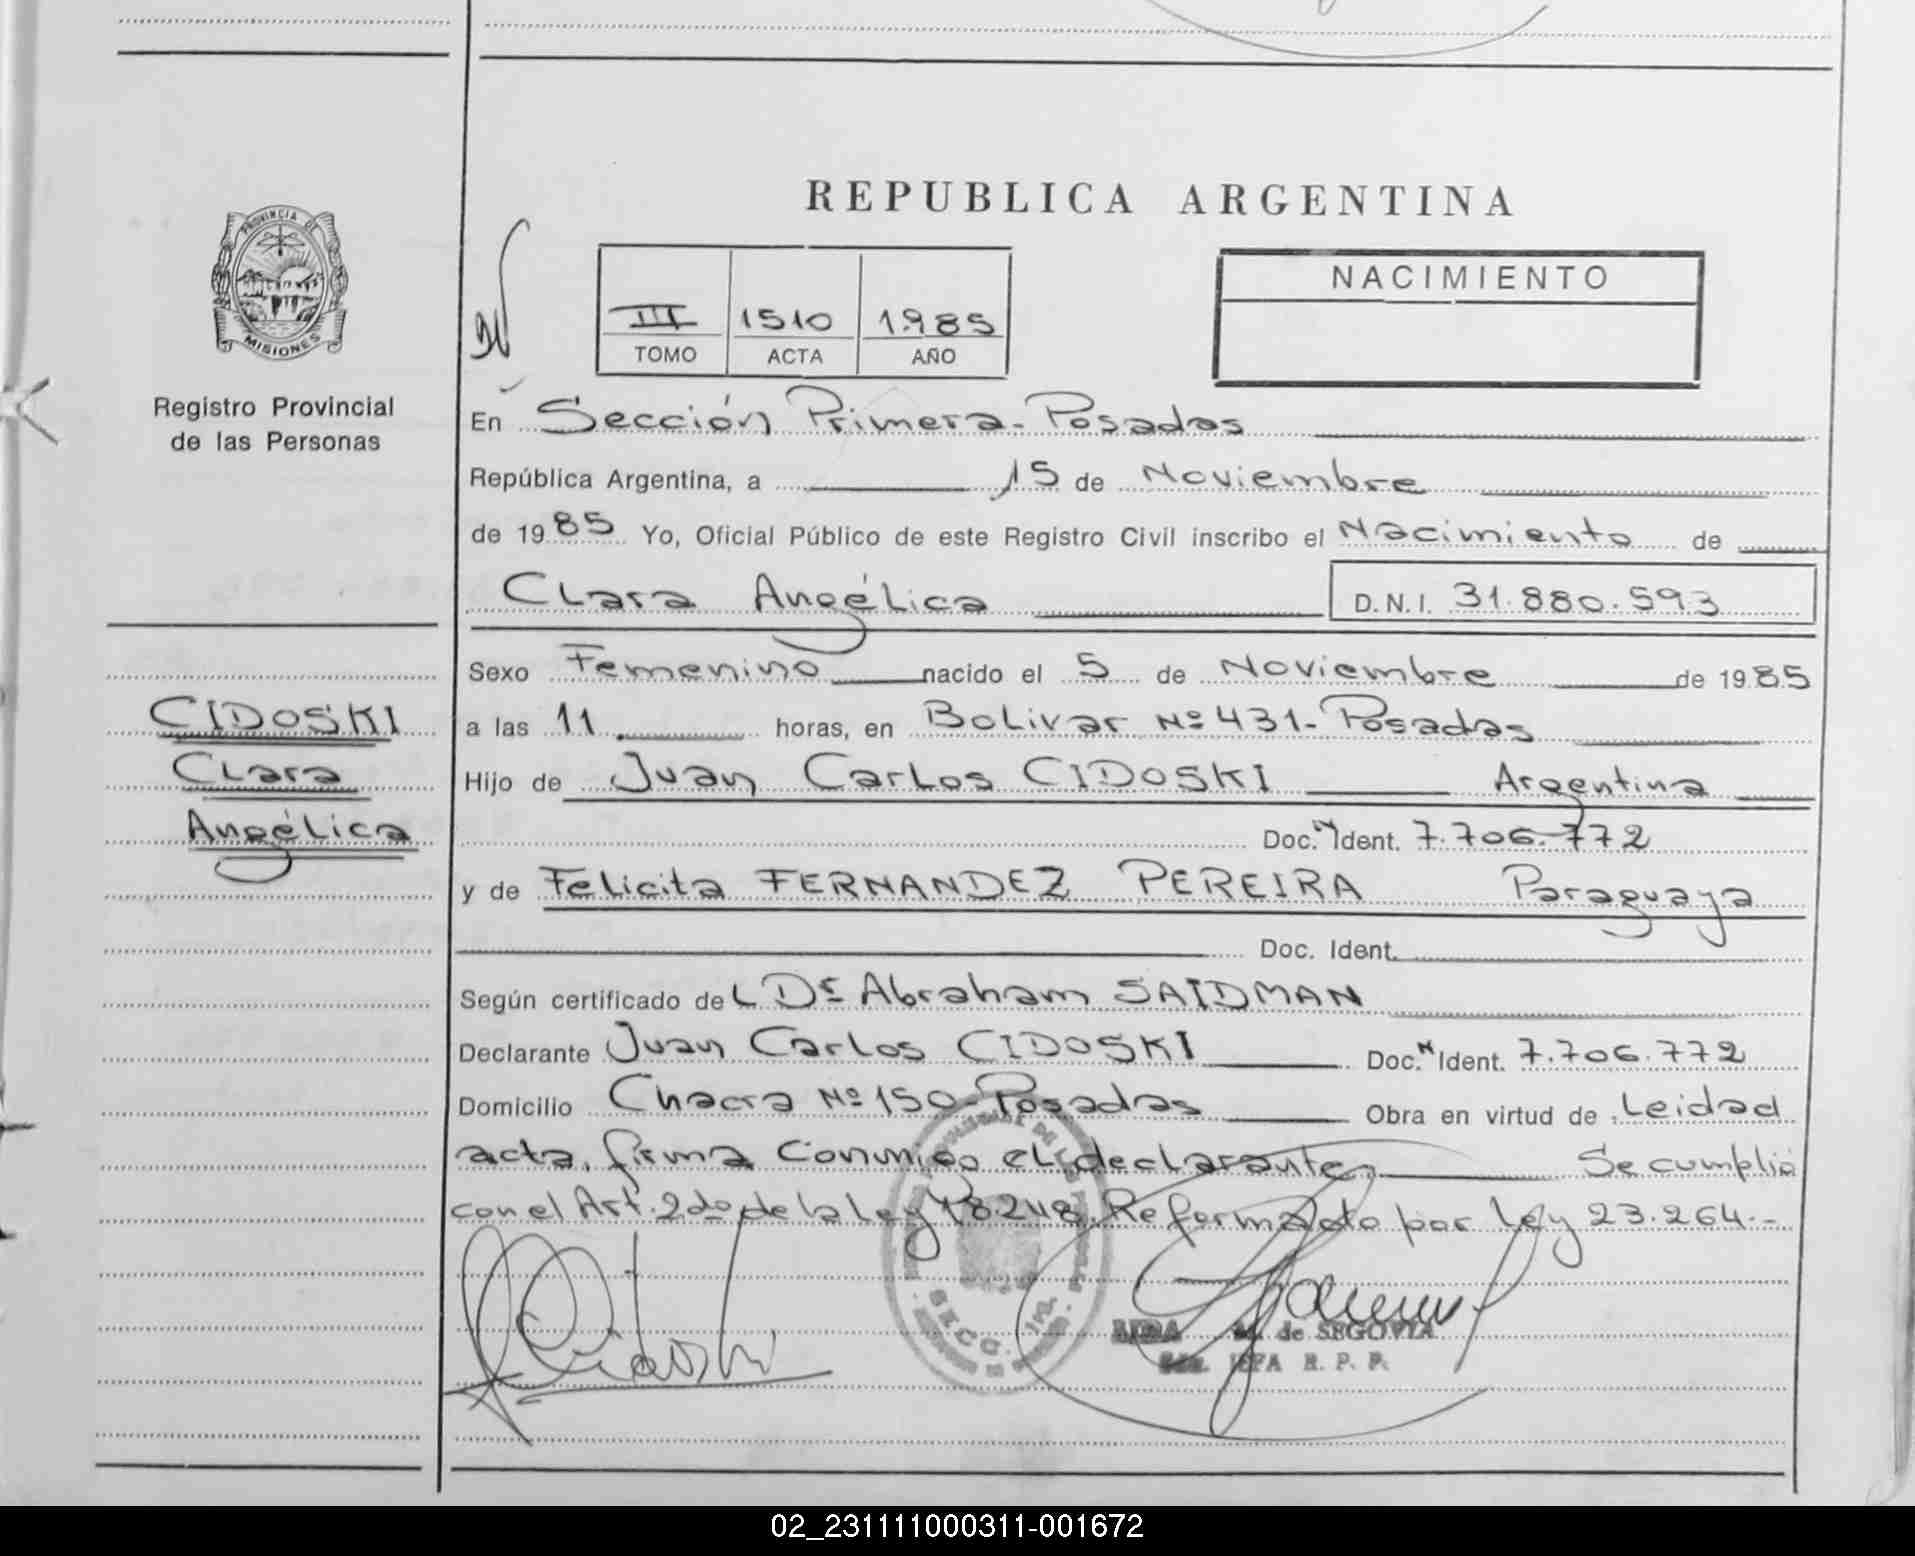 REPUBLICA ARGENTINA
PROVINCIA DE
MISIONES
Registro Provincial
de las Personas
III 1510 1985
TOMO ACTA AÑO
NACIMIENTO
En Sección Primera - Posadas
República Argentina, a 15 de Noviembre
de 1985 Yo, Oficial Público de este Registro Civil inscribo el Nacimiento de
Clara Angélica D.N.I. 31.880.593
Sexo Femenino nacido el 5 de Noviembre de 1985
CIDOSKI
Clara
Angélica
a las 11 horas, en Bolivar Nº 431 - Posadas
Hijo de Juan Carlos CIDOSKI Argentina
Doc. N Ident. 7.706.772
y de Felicita FERNANDEZ PEREIRA Paraguaya
Doc. Ident.
Según certificado de L Dr Abraham SAIDMAN
Declarante Juan Carlos CIDOSKI Doc. N Ident. 7.706.772
Domicilio Chacra Nº 150 - Posadas Obra en virtud de Leidad
acta, firma conmigo el declarante. Se cumplió
con el Art. 2do de la Ley 18.248. Reformado por Ley 23.264.-
SECC. 1ra.
de SEGOVIA
JEFA R. P. P.
02_231111000311-001672